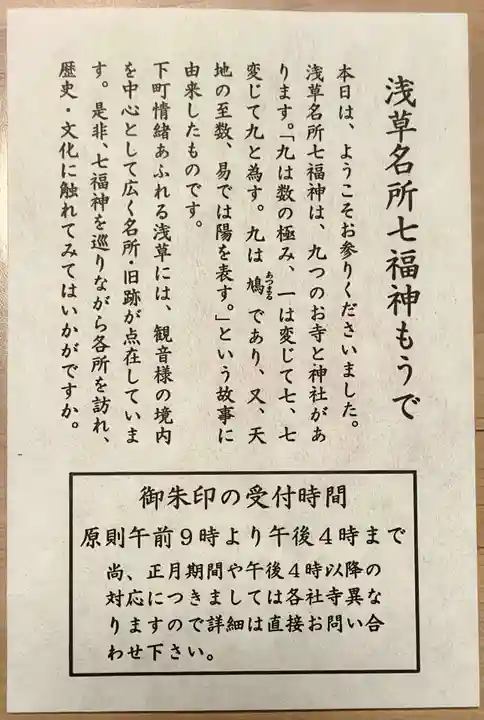 浅草名所七福神もうで
本日は、ようこそお参りくださいました。
浅草名所七福神は、九つのお寺と神社があ
ります。「九は数の極み、一は変じて七、七
変じて九と為す。九は鳩であり、又、天
あつまる
地の至数、易では陽を表す。」という故事に
由来したものです。
下町情緒あふれる浅草には、観音様の境内
を中心として広く名所・旧跡が点在していま
す。是非、七福神を巡りながら各所を訪れ、
歴史・文化に触れてみてはいかがですか。
御朱印の受付時間
原則午前9時より午後4時まで
尚、正月期間や午後4時以降の
対応につきましては各社寺異な
りますので詳細は直接お問い合
わせ下さい。